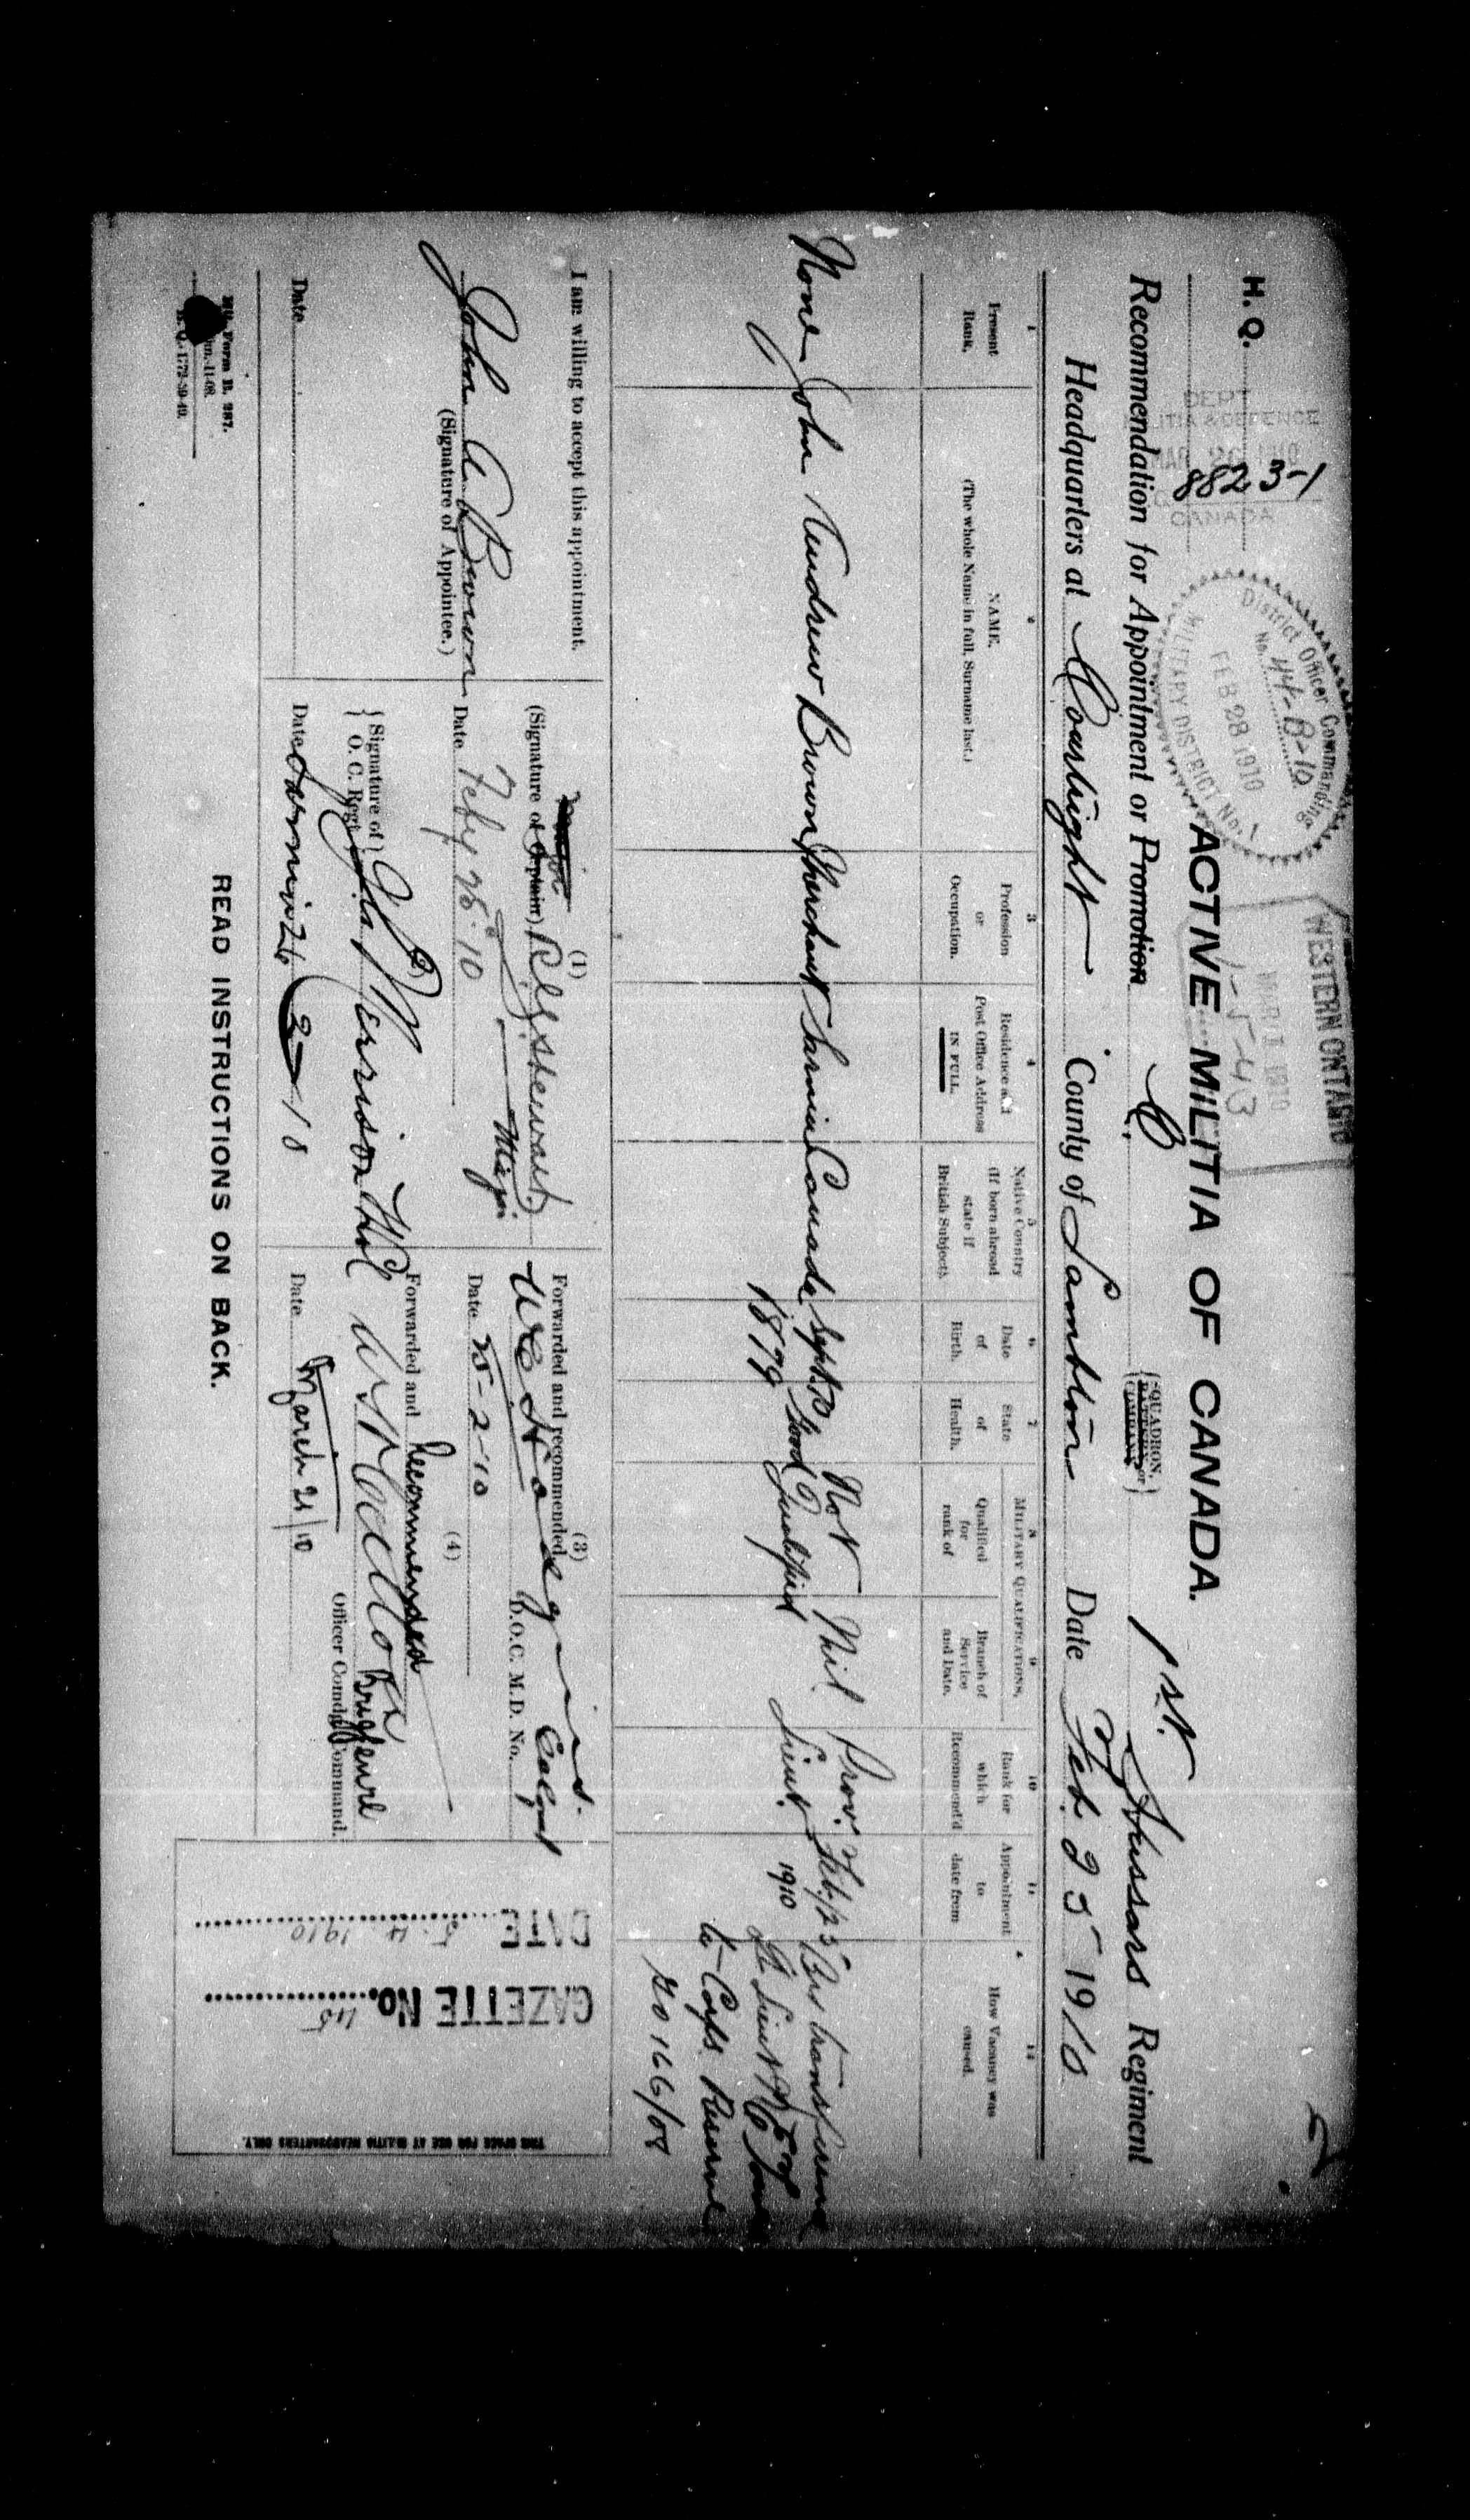 H. Q.
8823-1
DEPT
MILITIA & DEFENCE
MAR 26 1910
CANADA
District Officer Commanding
No. 44-B-10
FEB 28 1910
MILITARY DISTRICT No. 1
WESTERN ONTARIO
1-5-43
MAR 1 1910
ACTIVE MILITIA OF CANADA.
Recommendation for Appointment or Promotion C. {SQUADRON, BATTERY or COMPANY} 1st Hussars Regiment
Headquarters at Courtright County of Lambton Date Feb 25 1910
1 Present Rank.
2 NAME. (The whole Name in full, Surname last.)
3 Profession or Occupation.
4 Residence and Post Office Address IN FULL.
5 Native Country (If born abroad state if British Subject).
6 Date of Birth.
7 State of Health.
MILITARY QUALIFICATIONS,
8 Qualified for rank of
9 Branch of Service and Date.
10 Rank for which Recommend'd
11 Appointment to date from
12 How Vacancy was caused.
None John Andrew Brown Merchant Sarnia Canada Sept. 13 1879 Good Not Qualified Nil Prov. Lieut. Feb/25 1910
By transference of Lieut
to Corps Reserve
GO 166/08
I am willing to accept this appointment.
John A Brown
(Signature of Appointee.)
Date
(1)
(Signature of Captain) Stewart Major
Date Feby 25 10
(2)
{Signature of O. C. Regt.} Merrison
Date Sarnia 26 2 10
(3)
Forwarded and recommended,
W E Hodgins. Colonel
D.O.C. M.D. No.
Date 25-2-10
(4)
Forwarded and Recommended
Brig Genl
Officer Comdg Command.
Date March 21/10
DATE 5.4.1910
GAZETTE No. 45
THIS SPACE FOR USE AT MILITIA HEADQUARTERS ONLY.
Form B. 287.
11-08.
H. Q. 1772-39-40.
READ INSTRUCTIONS ON BACK.